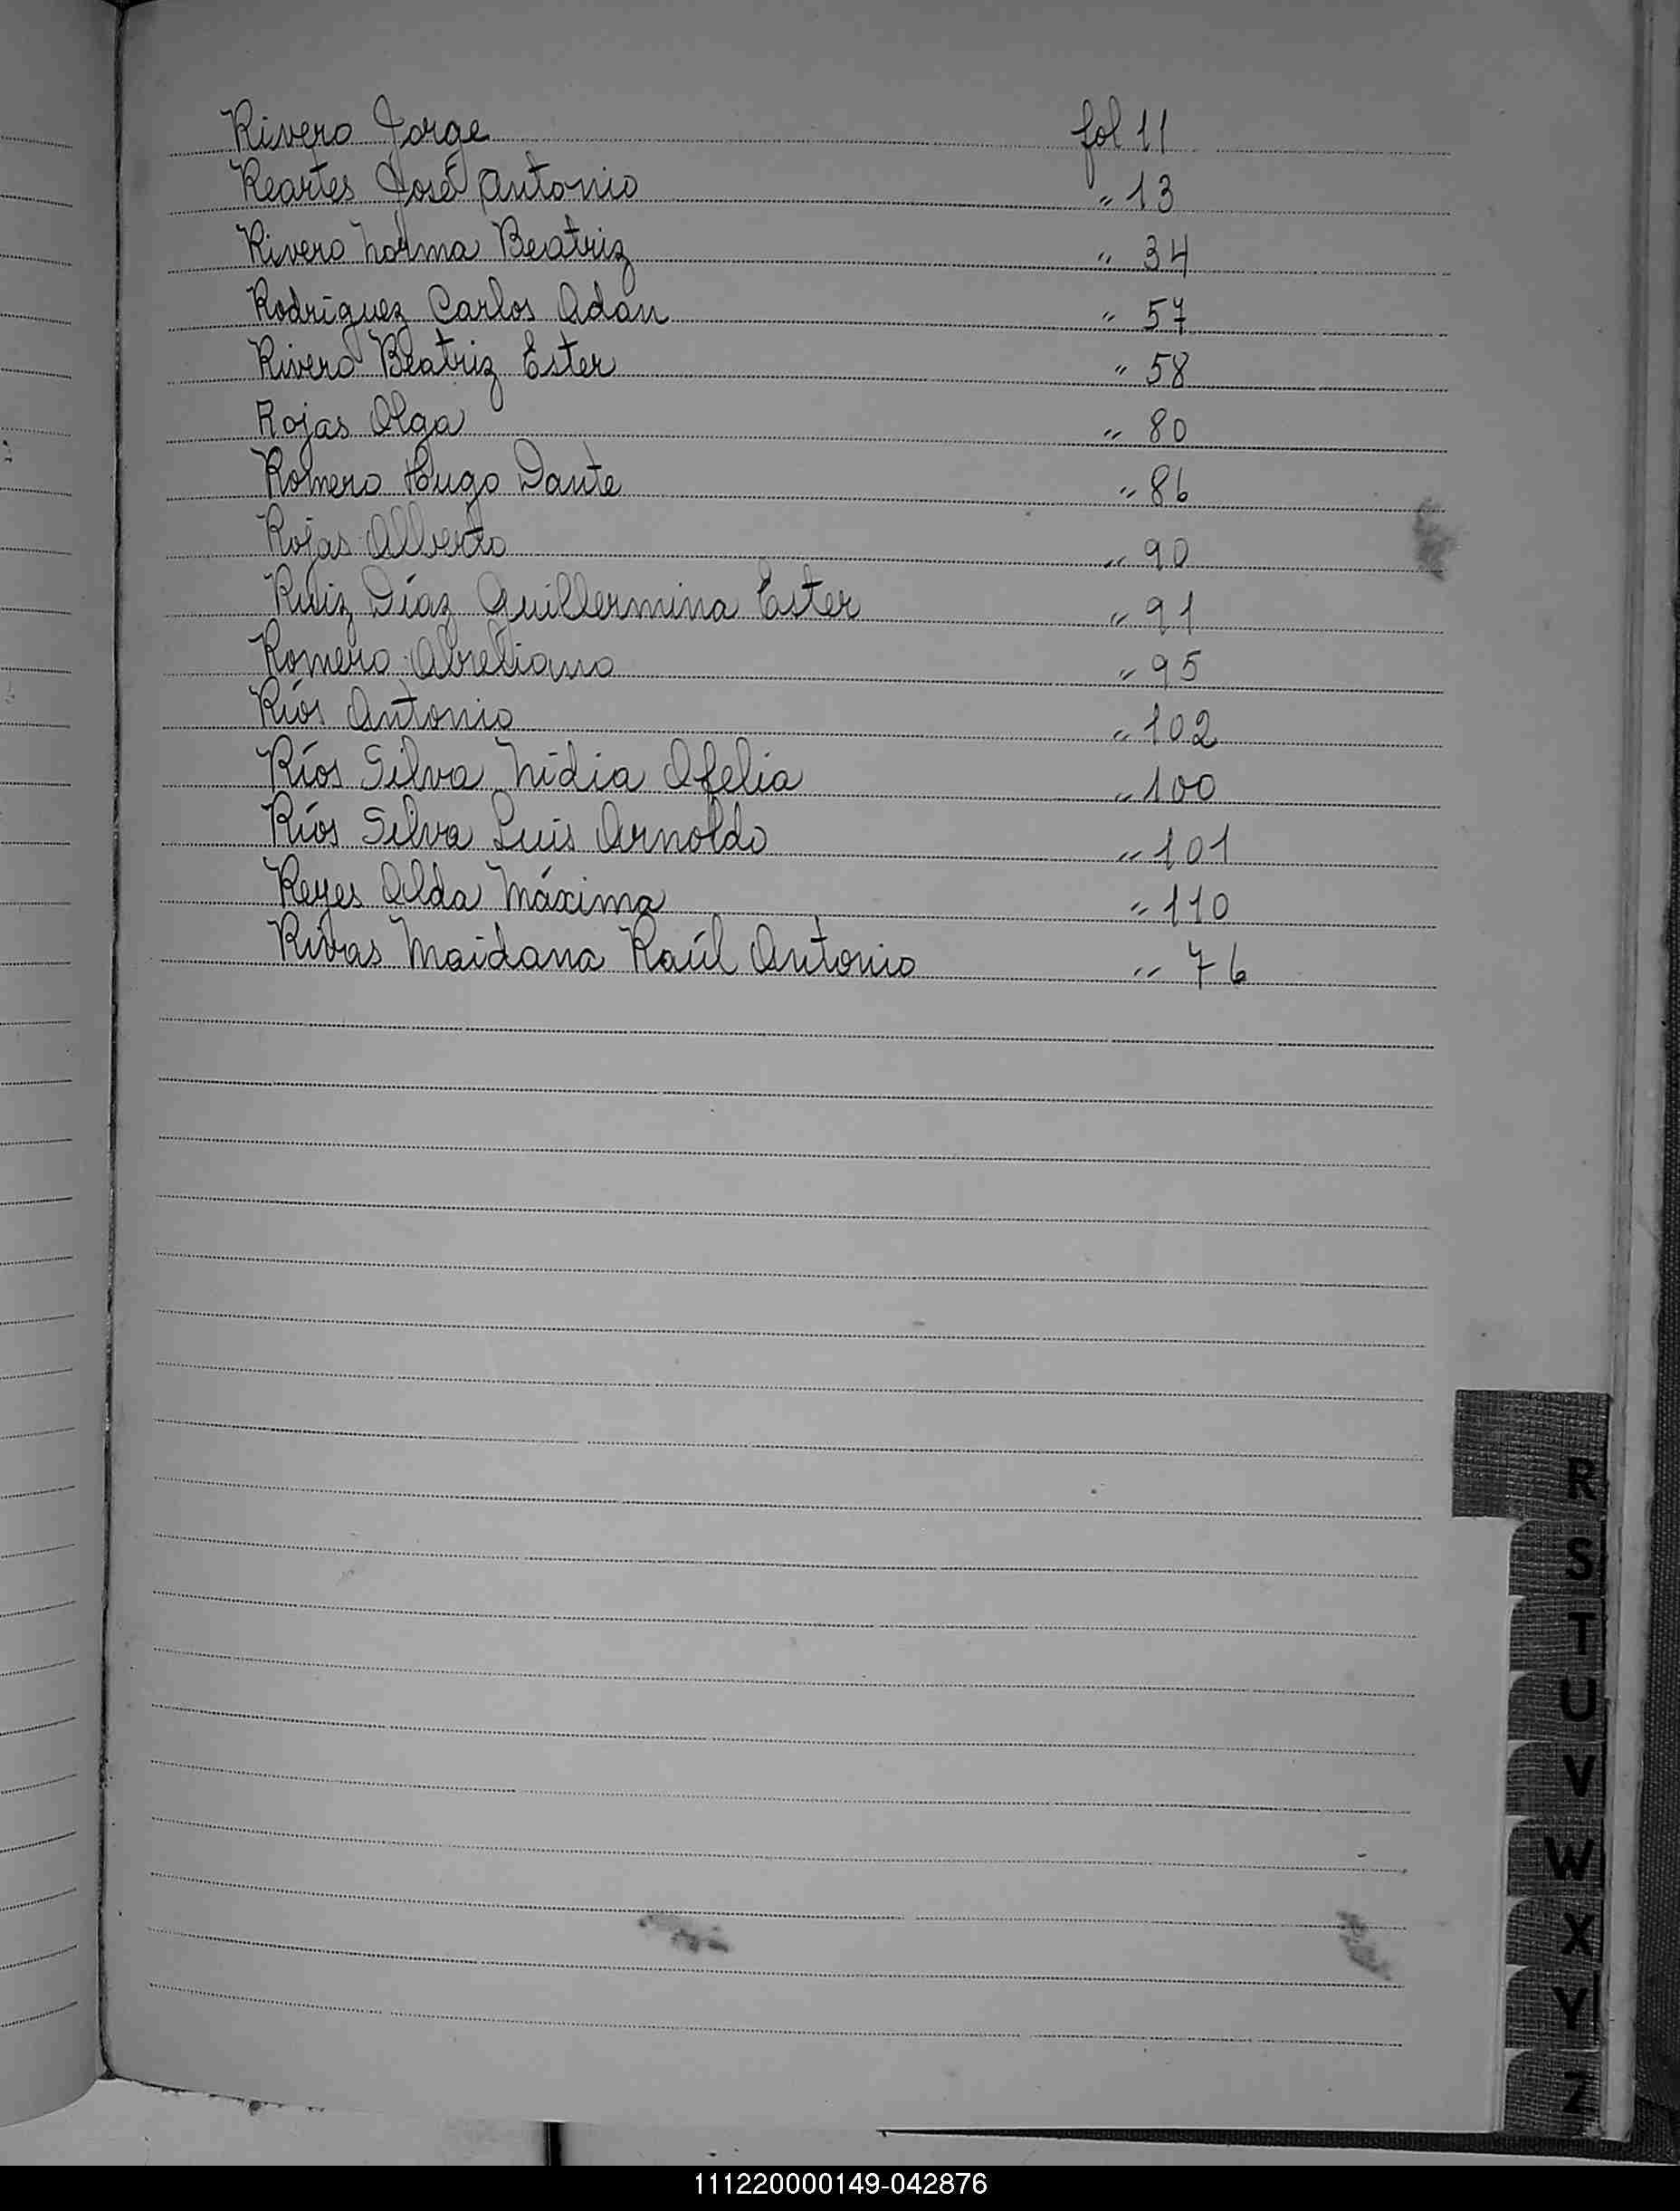 Rivero Jorge fol 11
Reartes José Antonio " 13
Rivero Norma Beatriz " 34
Rodríguez Carlos Adán " 57
Rivero Beatriz Ester " 58
Rojas Olga " 80
Romero Hugo Dante " 86
Rojas Alberto " 90
Ruiz Díaz Guillermina Ester " 91
Romero Abreliano " 95
Ríos Antonio " 102
Ríos Silva Nidia Ofelia " 100
Ríos Silva Luis Arnoldo " 101
Reyes Alda Máxima " 110
Rivas Maidana Raúl Antonio " 76
R
S
T
U
V
W
X
Y
Z
111220000149-042876